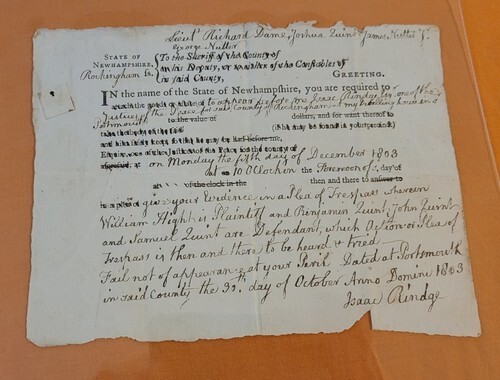 Lieut Richard Dame, Joshua Quint James Nutter
George Nutter
STATE OF To the Sheriff of the County of
NEWHAMPSHIRE, or his Deputy, or Constables of
Rockingham ss. in said County, GREETING.
IN the name of the State of Newhampshire, you are required to
to appear before me Isaac Rindge Esq one of the
Justices of the Peace for said County of Rockingham at my Dwelling house in
Portsmouth to the value of dollars, and for want thereof to
take the body of the said (if he may be found in your precinct)
and him safely keep, so that he may be had before me,
Esquire, one of the Justices of the Peace for the county of
aforesaid, at on Monday the fifth day of December 1803
at 10 OClock in the Forenoon of day of
at of the clock in the then and there to answer to
in a plea of give your Evidence in a Plea of Trespass wherein
William Hight is Plaintiff and Benjamin Quint, John Quint
and Samuel Quint are Defendant, which Action or Plea of
Trespass is then and there to be heard & tried
Fail not of appearance at your Peril Dated at Portsmouth
in said County the 30th day of October Anno Domini 1803
Isaac Rindge